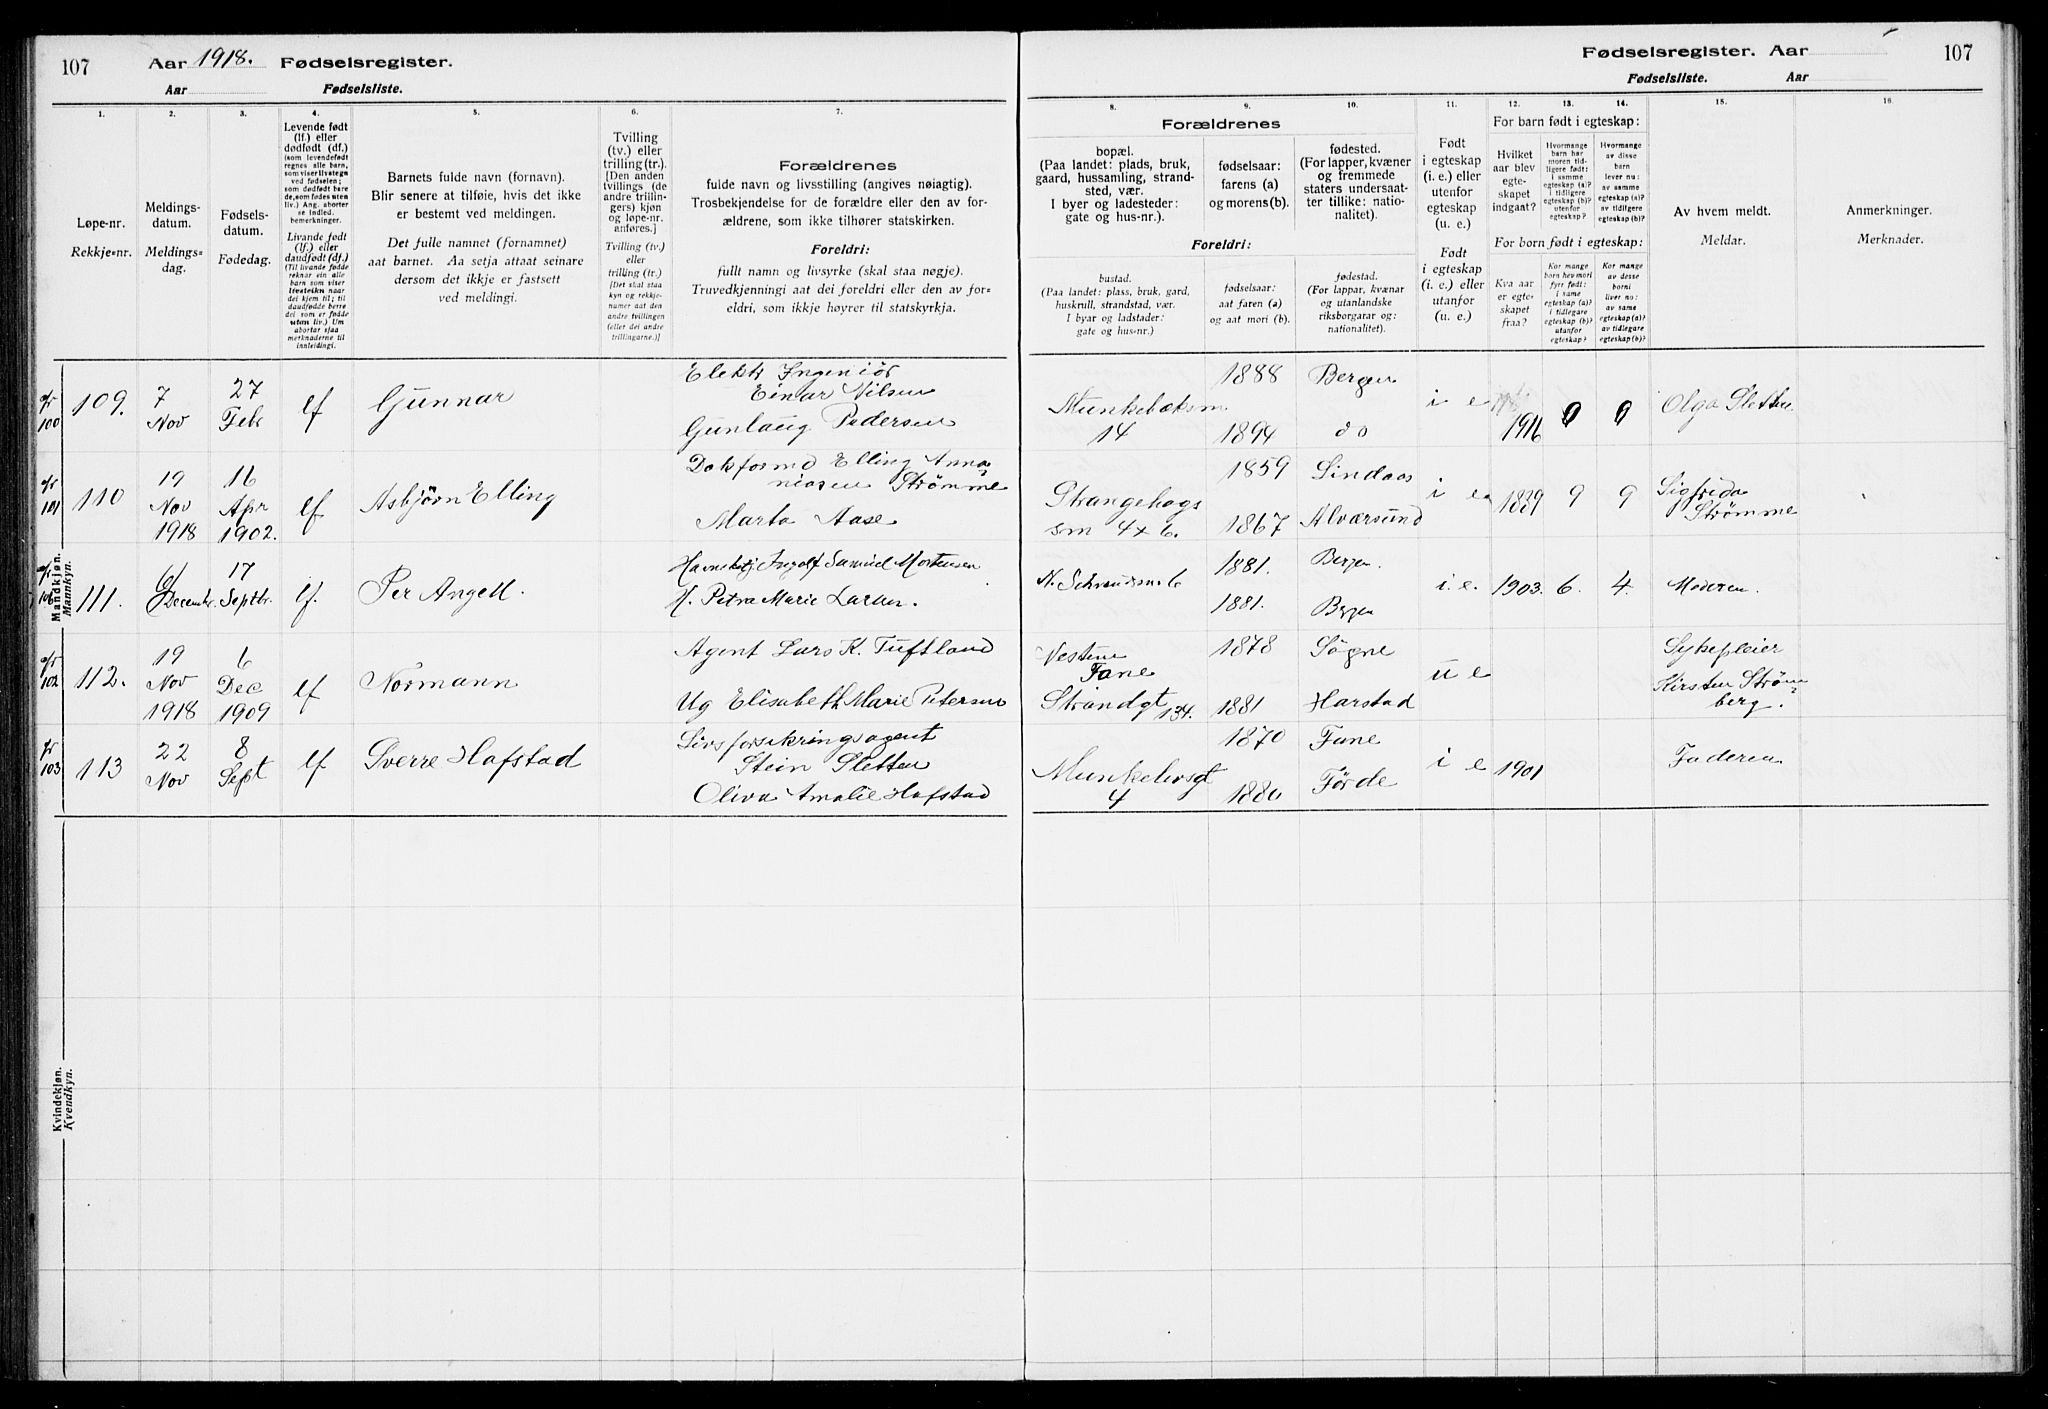 107 Aar 1918. Fødselsregister.
Aar Fødselsliste.
Fødselsregister. Aar 107
Fødselsliste. Aar
1. 2. 3. 4. 5. 6. 7.
8. 9. 10. 11. 12. 13. 14. 15. 16.
Løpe-nr.
Rekkje-nr.
Meldings-
datum.
Meldings-
dag.
Fødsels-
datum.
Fødedag.
Levende født
(lf.) eller
dødfødt (df.)
(som levendefødt
regnes alle barn,
som viser livstegn
ved fødselen;
som dødfødt bare
de, som fødes uten
liv.) Ang. aborter
se indled.
bemerkninger.
Livande født
(lf.) eller
daudfødt (df.)
(Til livande fødde
reknar ein alle
born som viser
livsteikn naar
dei kjem til; til
daudfødde berre
dei som er fødde
uten liv.) Um
abortar sjaa
merknaderne til
innleidingi.
Barnets fulde navn (fornavn).
Blir senere at tilføie, hvis det ikke
er bestemt ved meldingen.
Det fulle namnet (fornamnet)
aat barnet. Aa setja attaat seinare
dersom det ikkje er fastsett
ved meldingi.
Tvilling
(tv.) eller
trilling (tr.).
[Den anden
tvillings (de
andre trillin-
gers) kjøn
og løpe-nr.
anføres.]
Tvilling (tv.)
eller
trilling (tr.)
[Det skal staa
kyn og rekkje-
numer aat den
andre tvillingen
(eller dei andre
trillingarne.)]
Forældrenes
fulde navn og livsstilling (angives nøiagtig).
Trosbekjendelse for de forældre eller den av for-
ældrene, som ikke tilhører statskirken.
Foreldri:
fullt namn og livsyrke (skal staa nøgje).
Truvedkjenningi aat dei foreldri eller den av for-
eldri, som ikkje høyrer til statskyrkja.
Forældrenes
bopæl.
(Paa landet: plads, bruk,
gaard, hussamling, strand-
sted, vær.
I byer og ladesteder:
gate og hus-nr.).
fødselsaar:
farens (a)
og morens (b).
fødested.
(For lapper, kvæner
og fremmede
staters undersaat-
ter tillike: natio-
nalitet).
Foreldri:
bustad.
(Paa landet: plass, bruk, gard,
huskrull, strandstad, vær.
I byar og ladstader:
gate og hus-nr.)
fødselsaar:
aat faren (a)
og aat mori (b).
fødestad.
(For lappar, kvænar
og utanlandske
riksborgarar og:
nationalitet).
Født
i egteskap
(i. e.) eller
utenfor
egteskap
(u. e.)
Født
i egteskap
(i. e.) eller
utanfor
(u. e.)
For barn født i egteskap:
Hvilket
aar blev
egte-
skapet
indgaat?
Hvormange
barn har
moren tid-
ligere født:
i samme
egteskap (a)?
i tidligere
egteskap (b)?
utenfor
egteskap?
Hvormange
av disse
barn
lever nu:
av samme
egteskap (a)?
av tidligere
egteskap (b)?
For born født i egteskap:
Kva aar
er egte-
skapet
fraa?
Kor mange
born hev mori
fyrr født:
i same
egteskap (a)?
i tidlegare
egteskap (b)?
utanfor
egteskap?
Kor mange
av desse
borni
liver no:
av same
egteskap (a)?
av tidlegare
egteskap (b)?
Av hvem meldt.
Meldar.
Anmerkninger.
Merknader.
Mandkjøn.
Mannkyn.
100 109. 7 Nov 27 Feb lf Gunnar
Elektr Ingeniör
Einar Nilsen
Gunlaug Pedersen
Munkebæksm 14
1888 Bergen
1894 do
i e 1916 0 0 Olga Sletten
101 110 19 Nov 1918 16 Apr 1902. lf Asbjörn Elling
Dokformd Elling Anna-
niasen Strömme
Marta Aase
Strangehags
sm 4 x 6.
1859 Lindaas
1867 Alværsund
i e 1889 9 9 Sigfrida
Strömme
111. 6/ Decembr. 17 Septbr. lf. Per Angell.
Ingolf Samuel Mortensen
H. Petra Marie Larsen.
1881. Bergen.
1881. Bergen
i. e. 1903. 6. 4. Moderen.
102 112. 19 Nov 1918 6 Dec 1909 lf Normann
Agent Lars K. Tuftland
Ug Elisabeth Marie Petersen
Vestre
Fane
Strandgt 134.
1878 Søgne
1881 Harstad
u e Sykepleier
Kirsten Ström-
berg.
103 113 22 Nov 8 Sept lf Sverre Hofstad
Livsforsikringsagent
Stein Sletten
Oliva Amalie Hofstad
Munkebrsgt
4
1870 Fane
1880 Förde
i e 1901 Faderen
Kvindekjøn.
Kvendkyn.